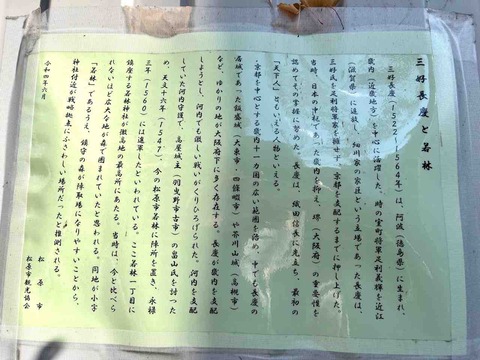 三好長慶と若林
三好長慶(1522〜1564年)は、阿波(徳島県)に生まれ、
畿内(近畿地方)を中心に活躍した。時の室町将軍足利義輝を近江
(滋賀県)に追放し、細川家の家臣という立場であった長慶は、
三好氏を足利将軍家を推戴せず、京都を支配するまでに押し上げた。
当時、日本の中枢であった畿内を抑え、堺(大阪府)の重要性を
認めてその掌握に努めた。長慶は、織田信長に先立ち、最初の
「天下人」ともいえる人物といえる。
京都を中心とする畿内十一カ国の広い範囲を治め、中でも長慶の
居城であった飯盛城(大東市・四條畷市)や芥川山城(高槻市)
など、ゆかりの地が大阪府下に多く存在する。長慶が畿内を支配
しようとし、河内でも激しい戦いがくりひろげられた。河内を支配
していた河内守護で、高屋城主(羽曳野市古市)の畠山氏を討った
め、天文十六年(1547)、今の松原市若林に陣所を置き、永禄
三年(1560)には進軍したといわれている。ここ若林一丁目に
鎮座する若林神社が微高地の最高所にあたる。当時は、今と比べら
れないほど広大な地が森で囲まれていたと思われる。同地が小字
「若林」であるうえ、鎮守の森が陣取場になりやすいことから、
神社付近が戦略拠点にふさわしい場所だったと推測される。
令和四年六月
松原市
松原市観光協会